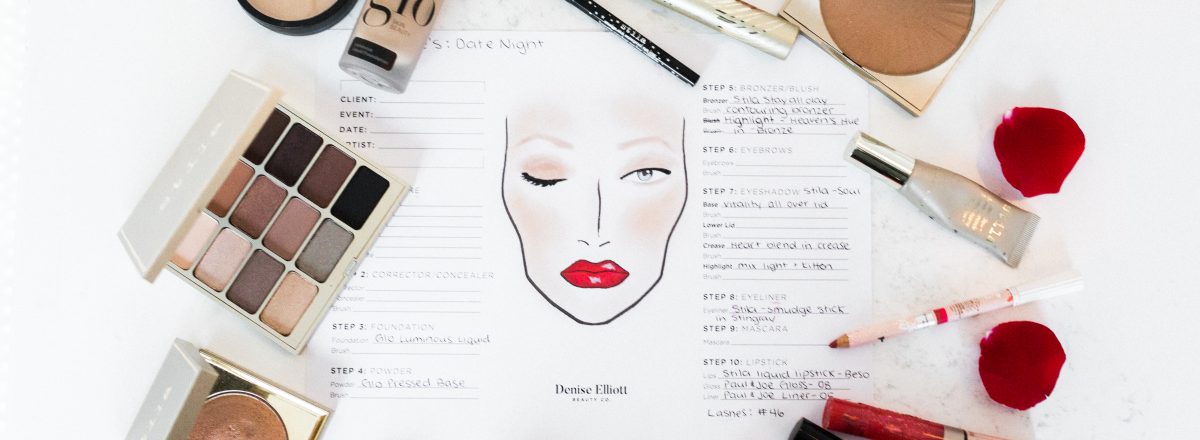 glo
SKIN
BEAUTY
e's: Date Night
CLIENT:
EVENT:
DATE:
RTIST:
STEP 2: CORRECTOR/CONCEALER
Brush
STEP 3: FOUNDATION
Foundation Glo Luminous Liquid
Brush
STEP 4: POWDER
Powder Glo Pressed Base
Brush
STEP 5: BRONZER/BLUSH
Bronzer Stila Stay all day
Brush contouring bronzer
Blush Highlight - Heaven's Hue
Brush in Bronze
STEP 6: EYEBROWS
Eyebrows
Brush
STEP 7: EYESHADOW Stila-Soul
Base Vitality all over lid
Brush
Lower Lid
Brush
Crease Heart blend in crease
Brush
Highlight mix light + Kitten
Brush
STEP 8: EYELINER
Eyeliner Stila-smudge stick
in Stingray
STEP 9: MASCARA
Mascara
STEP 10: LIPSTICK
Lips Stila liquid lipstick-Beso
Gloss Paul & Joe Gloss-08
Liner Paul & Joe Liner-
Lashes: #46
Denise Elliott
BEAUTY CO.